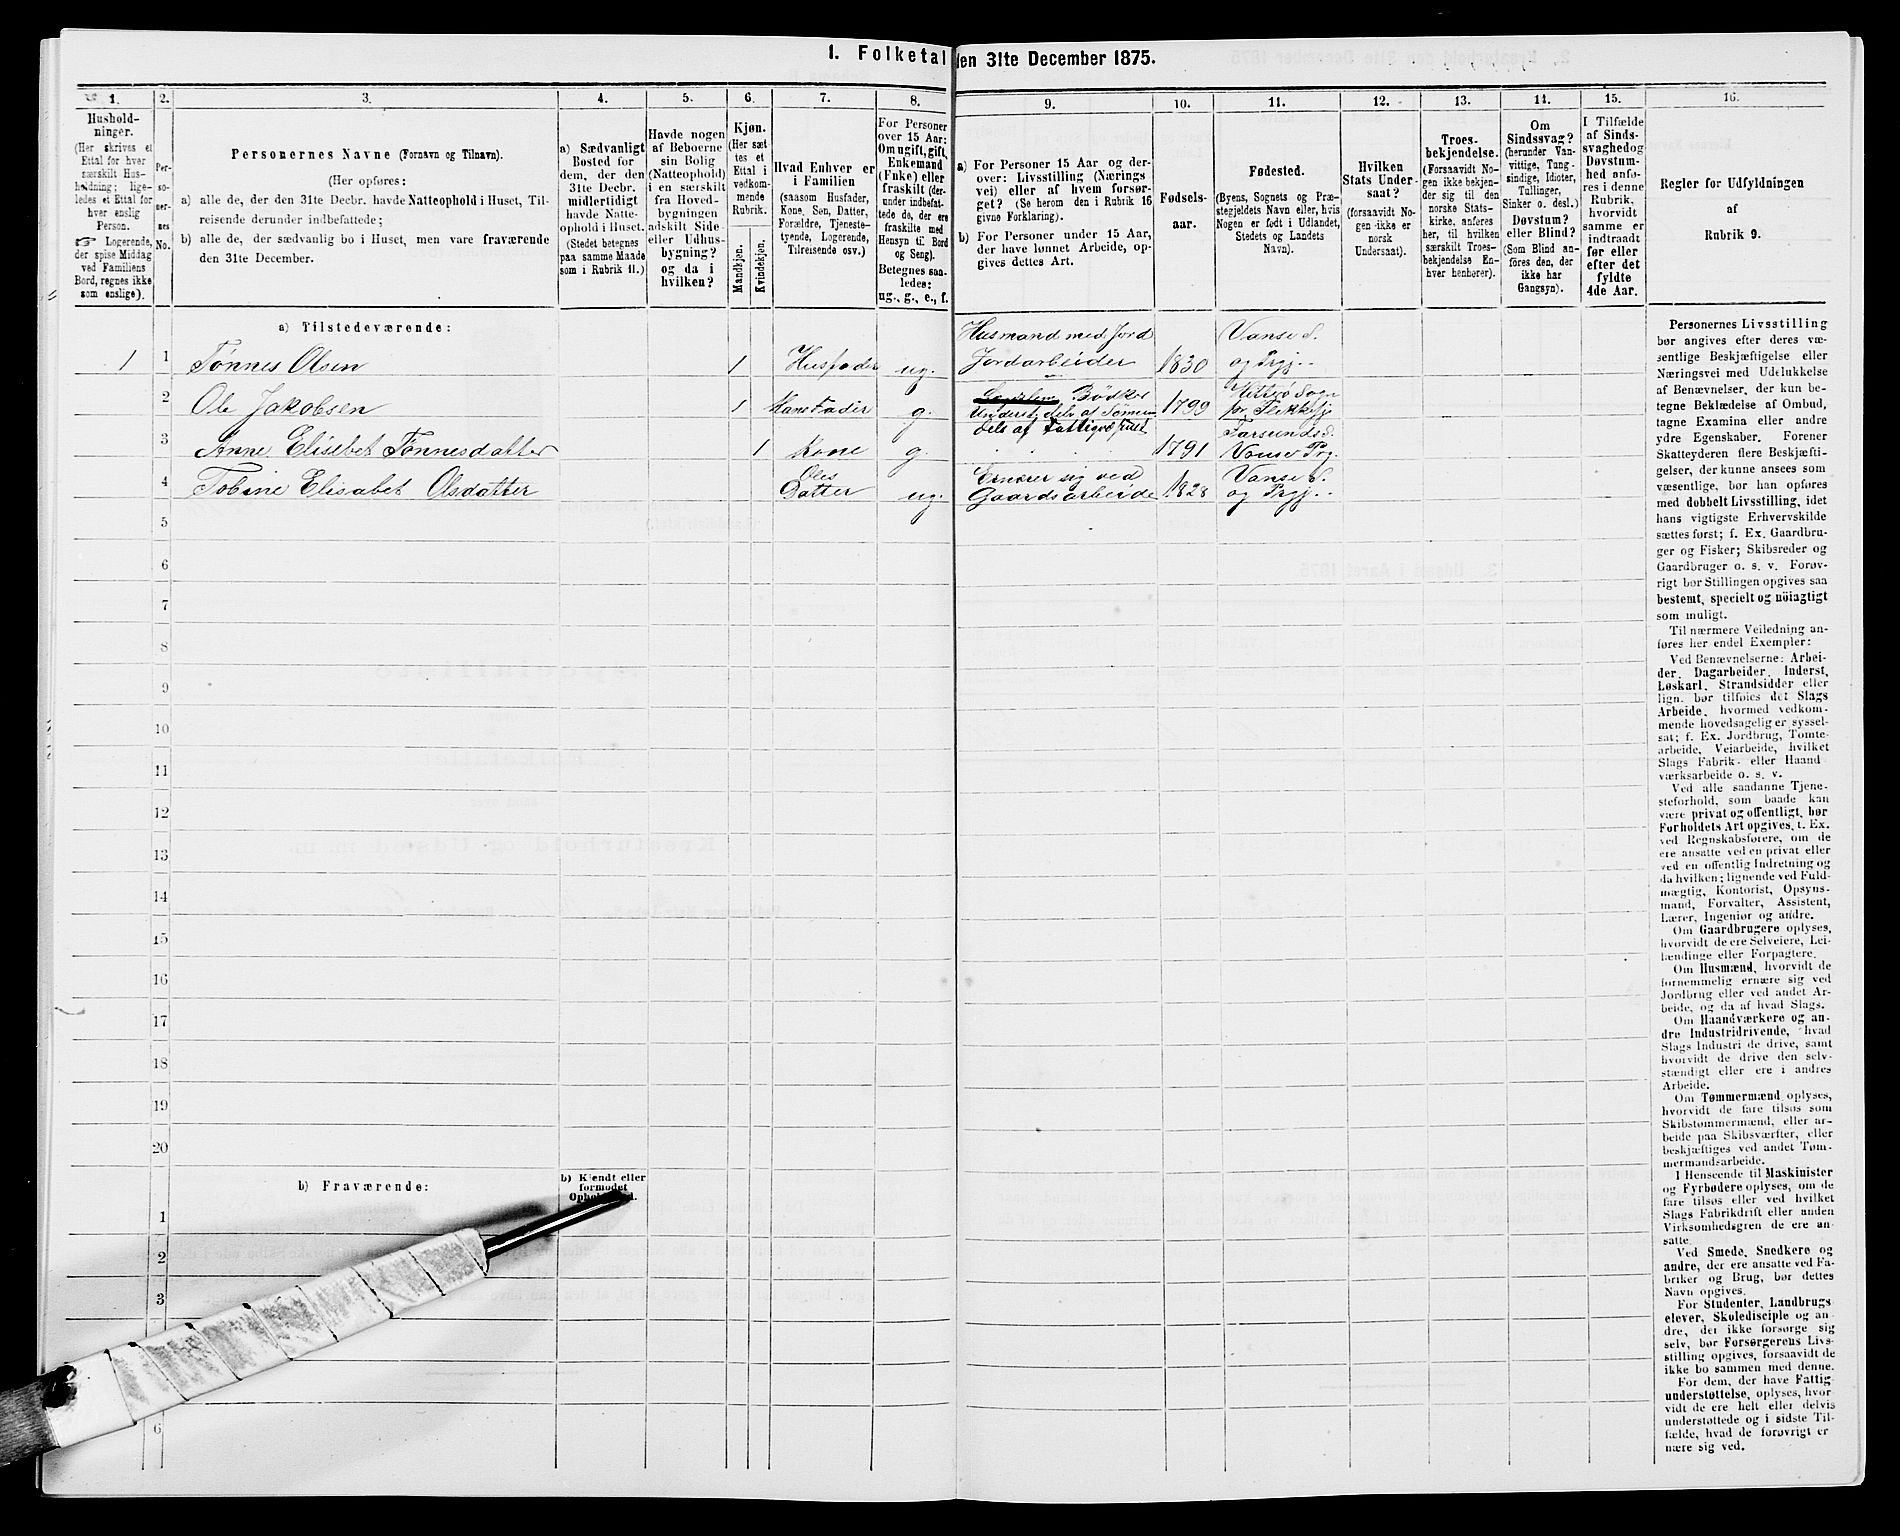 1. Folketal den 31te December 1875.
1.
Hushold-
ninger.
(Her skrives et
Ettal for hver
særskilt Hus-
holdning; lige-
ledes et Ettal for
hver enslig
Person.
☞ Logerende,
der spise Middag
ved Familiens
Bord, regnes ikke
som enslige).
2.
Per-
so-
ner-
nes
No.
3.
Personernes Navne (Fornavn og Tilnavn).
(Her opføres:
a) alle de, der den 31te Decbr. havde Natteophold i Huset, Til-
reisende derunder indbefattede;
b) alle de, der sædvanlig bo i Huset, men vare fraværende
den 31te December.
4.
a) Sædvanligt
Bosted for
dem, der den
31te Decbr.
midlertidigt
havde Natte-
ophold i Huset.
(Stedet betegnes
paa samme Maade
som i Rubrik 11.)
5.
Havde nogen
af Beboerne
sin Bolig
(Natteophold)
i en særskilt
fra Hoved-
bygningen
adskilt Side-
eller Udhus-
bygning?
og da i
hvilken?
6.
Kjøn.
(Her sæt
tes et
Ettal i
vedkom-
mende
Rubrik.
Mandkjøn.
Kvindekjøn.
7.
Hvad Enhver er
i Familien
(saasom Husfader,
Kone, Søn, Datter,
Forældre, Tjeneste-
tyende, Logerende,
Tilreisende osv.)
8.
For Personer
over 15 Aar:
Om ugift, gift,
Enkemand
(Enke) eller
fraskilt (der-
under indbefat-
tede de, der ere
fraskilte med
Hensyn til Bord
og Seng).
Betegnes saa-
ledes:
ug., g., e., f.
9.
a) For Personer 15 Aar og der-
over: Livsstilling (Nærings
vei) eller af hvem forsør-
get? (Se herom den i Rubrik 16
givne Forklaring).
b) For Personer under 15 Aar,
der have lønnet Arbeide, op-
gives dettes Art.
10.
Fødsels-
aar.
11.
Fødested.
(Byens, Sognets og Præ-
stegjeldets Navn eller, hvis
Nogen er født i Udlandet,
Stedets og Landets
Navn).
12.
Hvilken
Stats Under-
saat?
(forsaavidt No-
gen ikke er
norsk
Undersaat).
13.
Troes-
bekjendelse.
(Forsaavidt No-
gen ikke bekjen-
der sig til den
norske Stats-
kirke, anføres
her, til hvilken
særskilt Troes-
bekjendelse En-
hver henhører).
14.
Om
Sindssvag?
(herunder Van-
vittige, Tung-
sindige, Idioter,
Tullinger,
Sinker o. desl.)
Døvstum?
eller Blind?
(Som Blind an-
føres den, der
ikke har
Gangsyn).
15.
I Tilfælde
af Sinds-
svaghed og
Døvstum-
hed anfø-
res i denne
Rubrik,
hvorvidt
samme er
indtraadt
før eller
efter det
fyldte
4de Aar.
16.
Regler for Udfyldningen
af
Rubrik 9.
a) Tilstedeværende:
1 1 Tønnes Olsen 1 Husfader ug. Husmand med Jord Jordarbeider 1830 Vanse S. og Prgj.
2 Ole Jakobsen 1 g. Bödker Underst. dels af Sönnen dels af Fattigvæsenet 1799 Hitterö Sogn
3 Anne Elisebet Tønnesdatter 1 Kone g. 1791 Farsunds S. Vanse Prg.
4 Tobine Elisabet Olsdatter Oles Datter ug. Ernærer sig ved Gaardsarbeide 1828 Vanse S. og Prgj.
5
6
7
8
9
10
11
12
13
14
15
16
17
18
19
20
b) Fraværende:
b) Kjendt eller
formodet
1
2
3
6
Personernes Livsstilling
bør angives efter deres væ-
sentlige Beskjæftigelse eller
Næringsvei med Udelukkelse
af Benævnelser, der kun be-
tegne Beklædelse af Ombud,
tagne Examina eller andre
ydre Egenskaber. Forener
Skatteyderen flere Beskjæfti-
gelser, der kunne ansees som
væsentlige, bør han opføres
med dobbelt Livsstilling, idet
hans vigtigste Erhvervskilde
sættes først; f. Ex. Gaardbru-
ger og Fisker; Skibsreder og
Gaardbruger o. s. v. Forøv-
rigt bør Stillingen opgives saa
bestemt, specielt og nöiagtigt
som muligt.
Til nærmere Veiledning an-
føres her endel Exempler:
Ved Benævnelserne: Arbei-
der, Dagarbeider, Inderst,
Løskarl, Strandsidder eller
lign. bør tilføies det Slags
Arbeide, hvormed vedkom-
mende hovedsagelig er syssel-
sat; f. Ex. Jordbrug, Tomte-
arbeide, Veiarbeide, hvilket
Slags Fabrik- eller Haand
værksarbeide o. s. v.
Ved alle saadanne Tjene-
steforhold, som baade kan
være privat og offentligt, bør
Forholdets Art opgives, t. Ex.
ved Regnskabsførere, om de
ere ansatte ved en privat eller
ved en offentlig Indretning og
da hvilken; lignende ved Fuld-
mægtig, Kontorist, Opsyns-
mand, Forvalter, Assistent,
Lærer, Ingeniør og andre.
Om Gaardbrugere oplyses,
hvorvidt de ere Selveiere, Lei-
lændinge eller Forpagtere.
Om Husmænd, hvorvidt de
fornemmelig ernære sig ved
Jordbrug eller ved andet Ar-
beide, og da af hvad Slags.
Om Haandværkere og an-
dre Industridrivende, hvad
Slags Industri de drive, samt
hvorvidt de drive den selv-
stændigt eller ere i andres
Arbeide.
Om Tømmermænd oplyses,
hvorvidt de fare tilsøs som
Skibstømmermænd, eller ar-
beide paa Skibsværfter, eller
beskjæftiges ved andet Tøm-
mermandsarbeide.
I Henseende til Maskinister
og Fyrbødere oplyses, om de
fare tilsøs eller ved hvilket
Slags Fabrikdrift eller anden
Virksomhedsgren de ere an-
satte.
Ved Smede, Snedkere og
andre, der ere ansatte ved Fa-
briker og Brug, bør dettes
Navn opgives.
For Studenter, Landbrugs
elever, Skoledisciple og an-
dre, der ikke forsørge sig
selv, bør Forsørgerens Livs-
stilling opgives, forsaavidt de
ikke bo sammen med denne.
For dem, der have Fattig
understøttelse, oplyses, hvor
vidt de ere helt eller delvis
understøttede og i sidste Til-
fælde, hvad de forøvrigt er
nære sig ved.